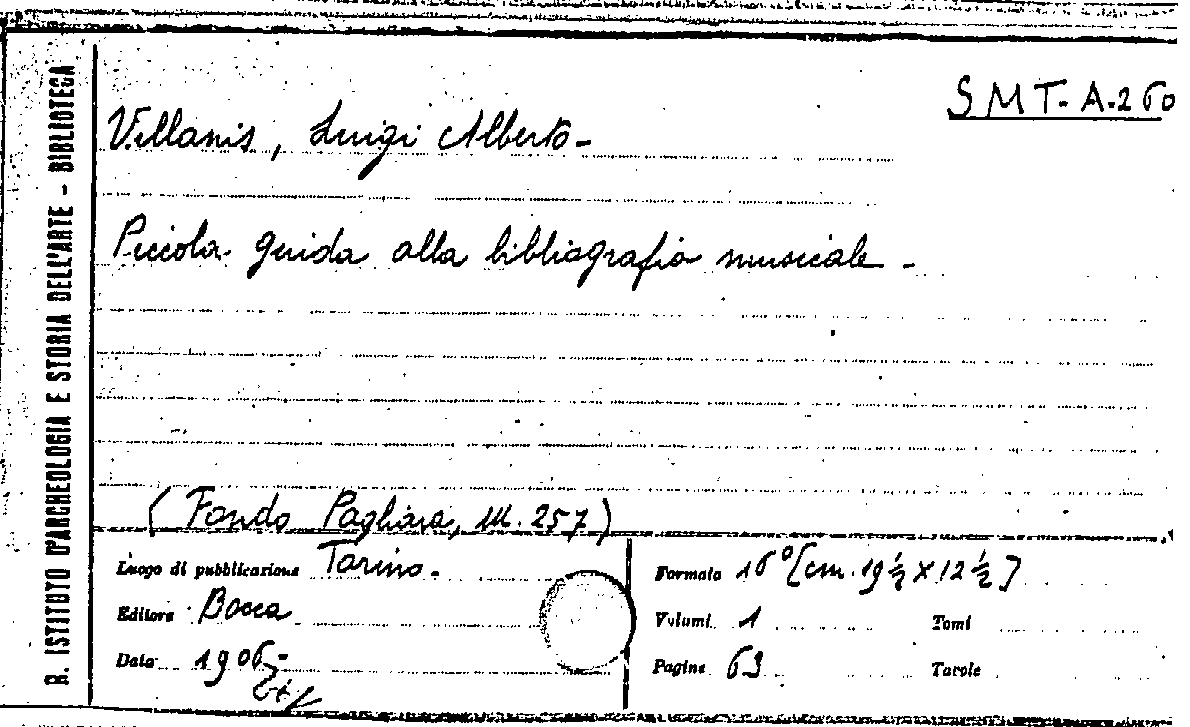 R. ISTITUTO D'ARCHEOLOGIA E STORIA DELL'ARTE - BIBLIOTECA
SMT-A-260
Villanis, Luigi Alberto-
Piccola guida alla bibliografia musicale -
(Fondo Pagliara, M. 257)
Luogo di pubblicazione Torino.
Editore Bocca
Data 1906-
Formato 16° [cm. 19½ X 12½]
Volumi 1 Tomi
Pagine 63 Tavole